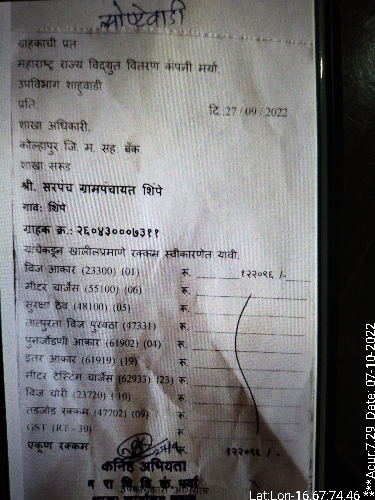 ग्राहकाची प्रत
महाराष्ट्र राज्य विद्युत वितरण कंपनी मर्या.
उपविभाग शाहुवाडी
प्रति, दि.:27/09/2022
शाखा अधिकारी,
कोल्हापुर जि. म. सह. बँक
शाखा: सरुड
श्री. सरपंच ग्रामपंचायत शिंपे
गाव: शिंपे
ग्राहक क्र.: २६०४३०००७३११
यांचेकडून खालीलप्रमाणे रक्कम स्वीकारणेत यावी.
विज आकार (23300) (01) रु. १२२०९६ /-
मीटर चार्जेस (55100) (06) रु.
सुरक्षा ठेव (48100) (05) रु.
तात्पुरता विज पुरवठा (47331) रु.
पुनर्जोडणी आकार (61902) (04) रु.
इतर आकार (61919) (19) रु.
मीटर टेस्टिंग चार्जेस (62933) (23) रु.
विज चोरी (23720) (10) रु.
तडजोड रक्कम (47702) (09) रु.
GST (RT - 30) रु.
एकूण रक्कम रु. १२२०९६ /-
कनिष्ठ अभियता
***Acur:7.29 Date: 07-10-2022
Lat:Lon-16.67:74.46